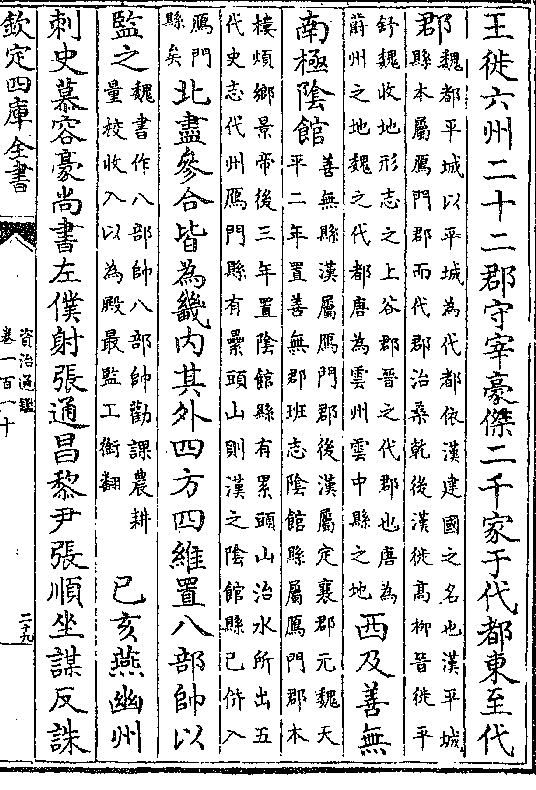 王徙六州二十二郡守宰豪傑二千家于代都東至代
郡魏都平城以平城為代都依漢建國之名也漢平城
縣本屬鴈門郡而代郡治桑乾後漢徙髙柳晉徙平
舒魏收地形志之上谷郡晉之代郡也唐為
蔚州之地魏之代都唐為雲州雲中縣之地西及善無
南極隂館善無縣漢屬鴈門郡後漢屬定襄郡元魏天
平二年置善無郡班志隂館縣屬鴈門郡本
樓煩鄉景帝後三年置隂館縣有累頭山治水所出五
代史志代州鴈門縣有纍頭山則漢之隂館縣已併入
鴈門
縣矣北盡參合皆為畿内其外四方四維置八部帥以
監之魏書作八部帥八部帥勸課農耕
量校收入以為殿最監工銜翻己亥燕幽州
刺史慕容豪尚書左僕射張通昌黎尹張順坐謀反誅
欽定四庫全書
資治通鑑
卷一百一十
二十九